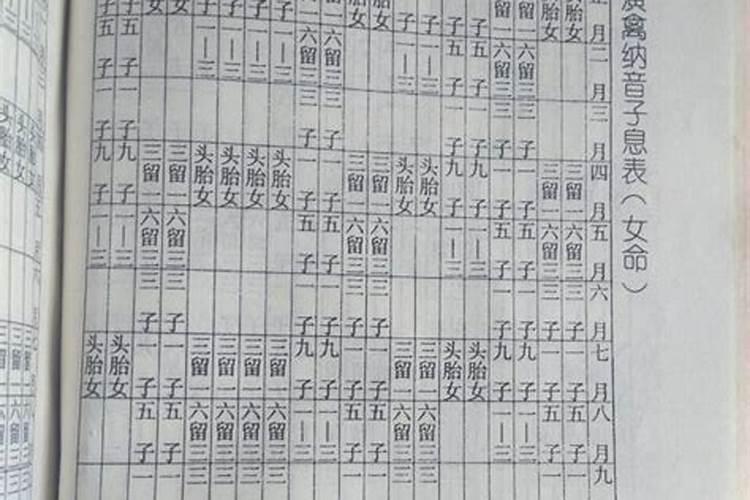 禽纳音子息表（女命）
月 二月 三月 四月 五月 六月 七月 八月 九
胎女 三留一 六留三 三子 一子 五子 一
胎女 三留一 六留三 三子 一子 五子 一
留一 六留三 三子 一子 五子 一子 九子 一—三
留一 六留三 三子 一子 五子 一子 九子 一—三
子 五子 一子 九子 一—三 头胎女
子 五子 一子 九子 一—三 头胎女
子 一—三 头胎女 三留一 六留三 三
子 一—三 头胎女 三留一 六留三 三
胎女 三留一 六留三 三子 一子 五子 一
胎女 三留一 六留三 三子 一子 五子 一
留一 六留三 三子 一子 五子 一子 九子 一—三
留一 六留三 三子 一子 五子 一子 九子 一—三
子 一—三 头胎女 三留一 六留三 三
子 一—三 头胎女 三留一 六留三 三
子 一—三 头胎女 三留一 六留三 三
子 一—三 头胎女 三留一 六留三 三
女 三留一 六留三 三子 一子 五子 一
女 三留一 六留三 三子 一子 五子 一
子 五子 一子 九子 一—三 头胎女
子 五子 一子 九子 一—三 头胎女